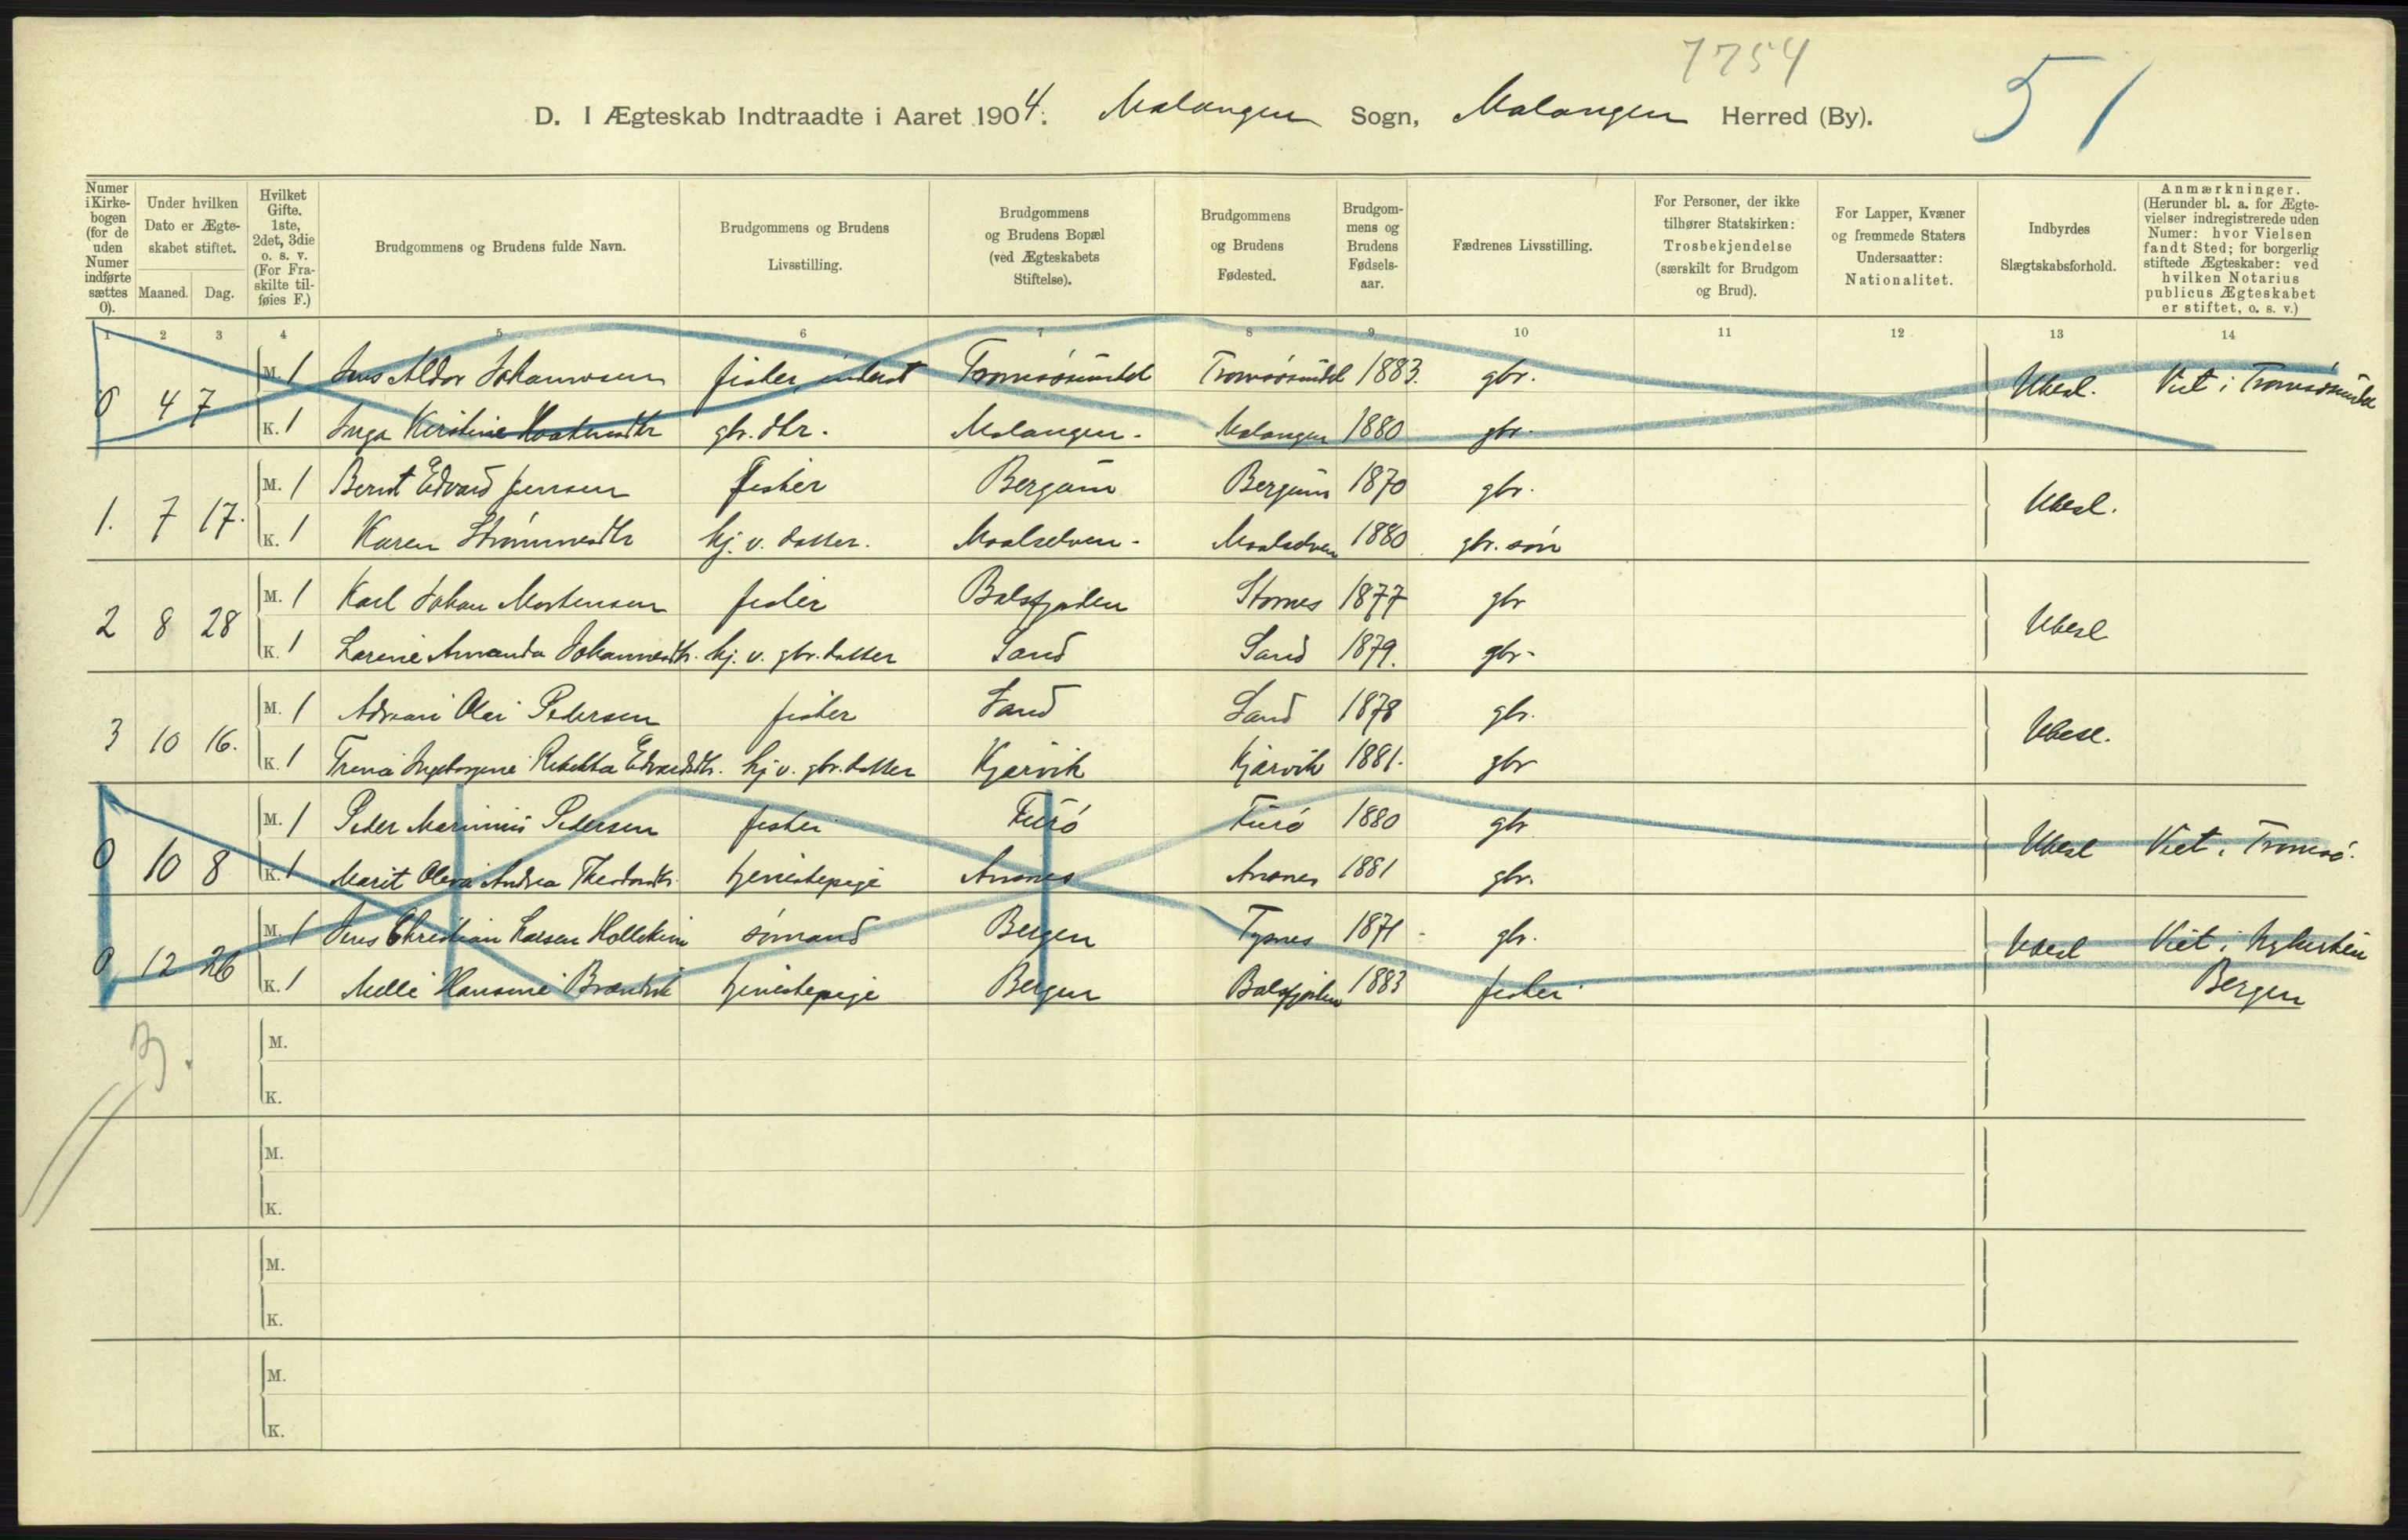 7754
51
D. I Ægteskab Indtraadte i Aaret 1904. Malangen Sogn, Malangen Herred (By).
Numer i Kirkebogen (for de uden Numer indførte sættes 0).
Under hvilken Dato er Ægteskabet stiftet.
Maaned. Dag.
Hvilket Gifte. 1ste, 2det, 3die o. s. v. (For Fraskilte tilføies F.)
Brudgommens og Brudens fulde Navn.
Brudgommens og Brudens Livsstilling.
Brudgommens og Brudens Bopæl (ved Ægteskabets Stiftelse).
Brudgommens og Brudens Fødested.
Brudgommens og Brudens Fødselsaar.
Fædrenes Livsstilling.
For Personer, der ikke tilhører Statskirken: Trosbekjendelse (særskilt for Brudgom og Brud).
For Lapper, Kvæner og fremmede Staters Undersaatter: Nationalitet.
Indbyrdes Slægtskabsforhold.
Anmærkninger. (Herunder bl. a. for Ægtevielser indregistrerede uden Numer: hvor Vielsen fandt Sted; for borgerlig stiftede Ægteskaber: ved hvilken Notarius publicus Ægteskabet er stiftet, o. s. v.)
1 2 3 4 5 6 7 8 9 10 11 12 13 14
0 4 7 M. 1 Jens Aldor Johannesen fisker, inderst Tromsøsundet Tromsøsundet 1883. gbr. Ubesl. Viet i Tromsøsundet
K. 1 Inga Kirstine gbr. dtr. Malangen. Malangen 1880 gbr.
1. 7 17. M. 1 Bernt Edvard Jensen fisker Bergum 1870 gbr. Ubesl.
K. 1 Karen hj. v. datter. Maalselven. Maalselven 1880 gbr. søn
2 8 28 M. 1 Karl Johan Mortensen fisker Balsfjorden Stornes 1877 gbr Ubesl
K. 1 Larine Amanda Johannesdtr. hj. v. gbr. datter Sand Sand 1879. gbr.
3 10 16. M. 1 Adrian Olai Pedersen fisker Sand Sand 1878 gbr. Ubesl.
K. 1 Trina Ingeborgine Rebekka Edvardsdtr. hj v. gbr. datter Kjærvik Kjærvik 1881. gbr
0 10 8 M. 1 Peder Marinius Pedersen fisker 1880 gbr Ubesl Viet i Tromsø.
K. 1 Marit Oleva Andrea tjenestepige Ansnes Ansnes 1881 gbr.
0 12 26 M. 1 Jens Christian Larsen sømand Bergen Tysnes 1871 gbr. Ubesl Viet i Nykirken
K. 1 Melle Hansine tjenestepige Bergen Balsfjorden 1883 fisker Bergen
3.
M.
K.
M.
K.
M.
K.
M.
K.